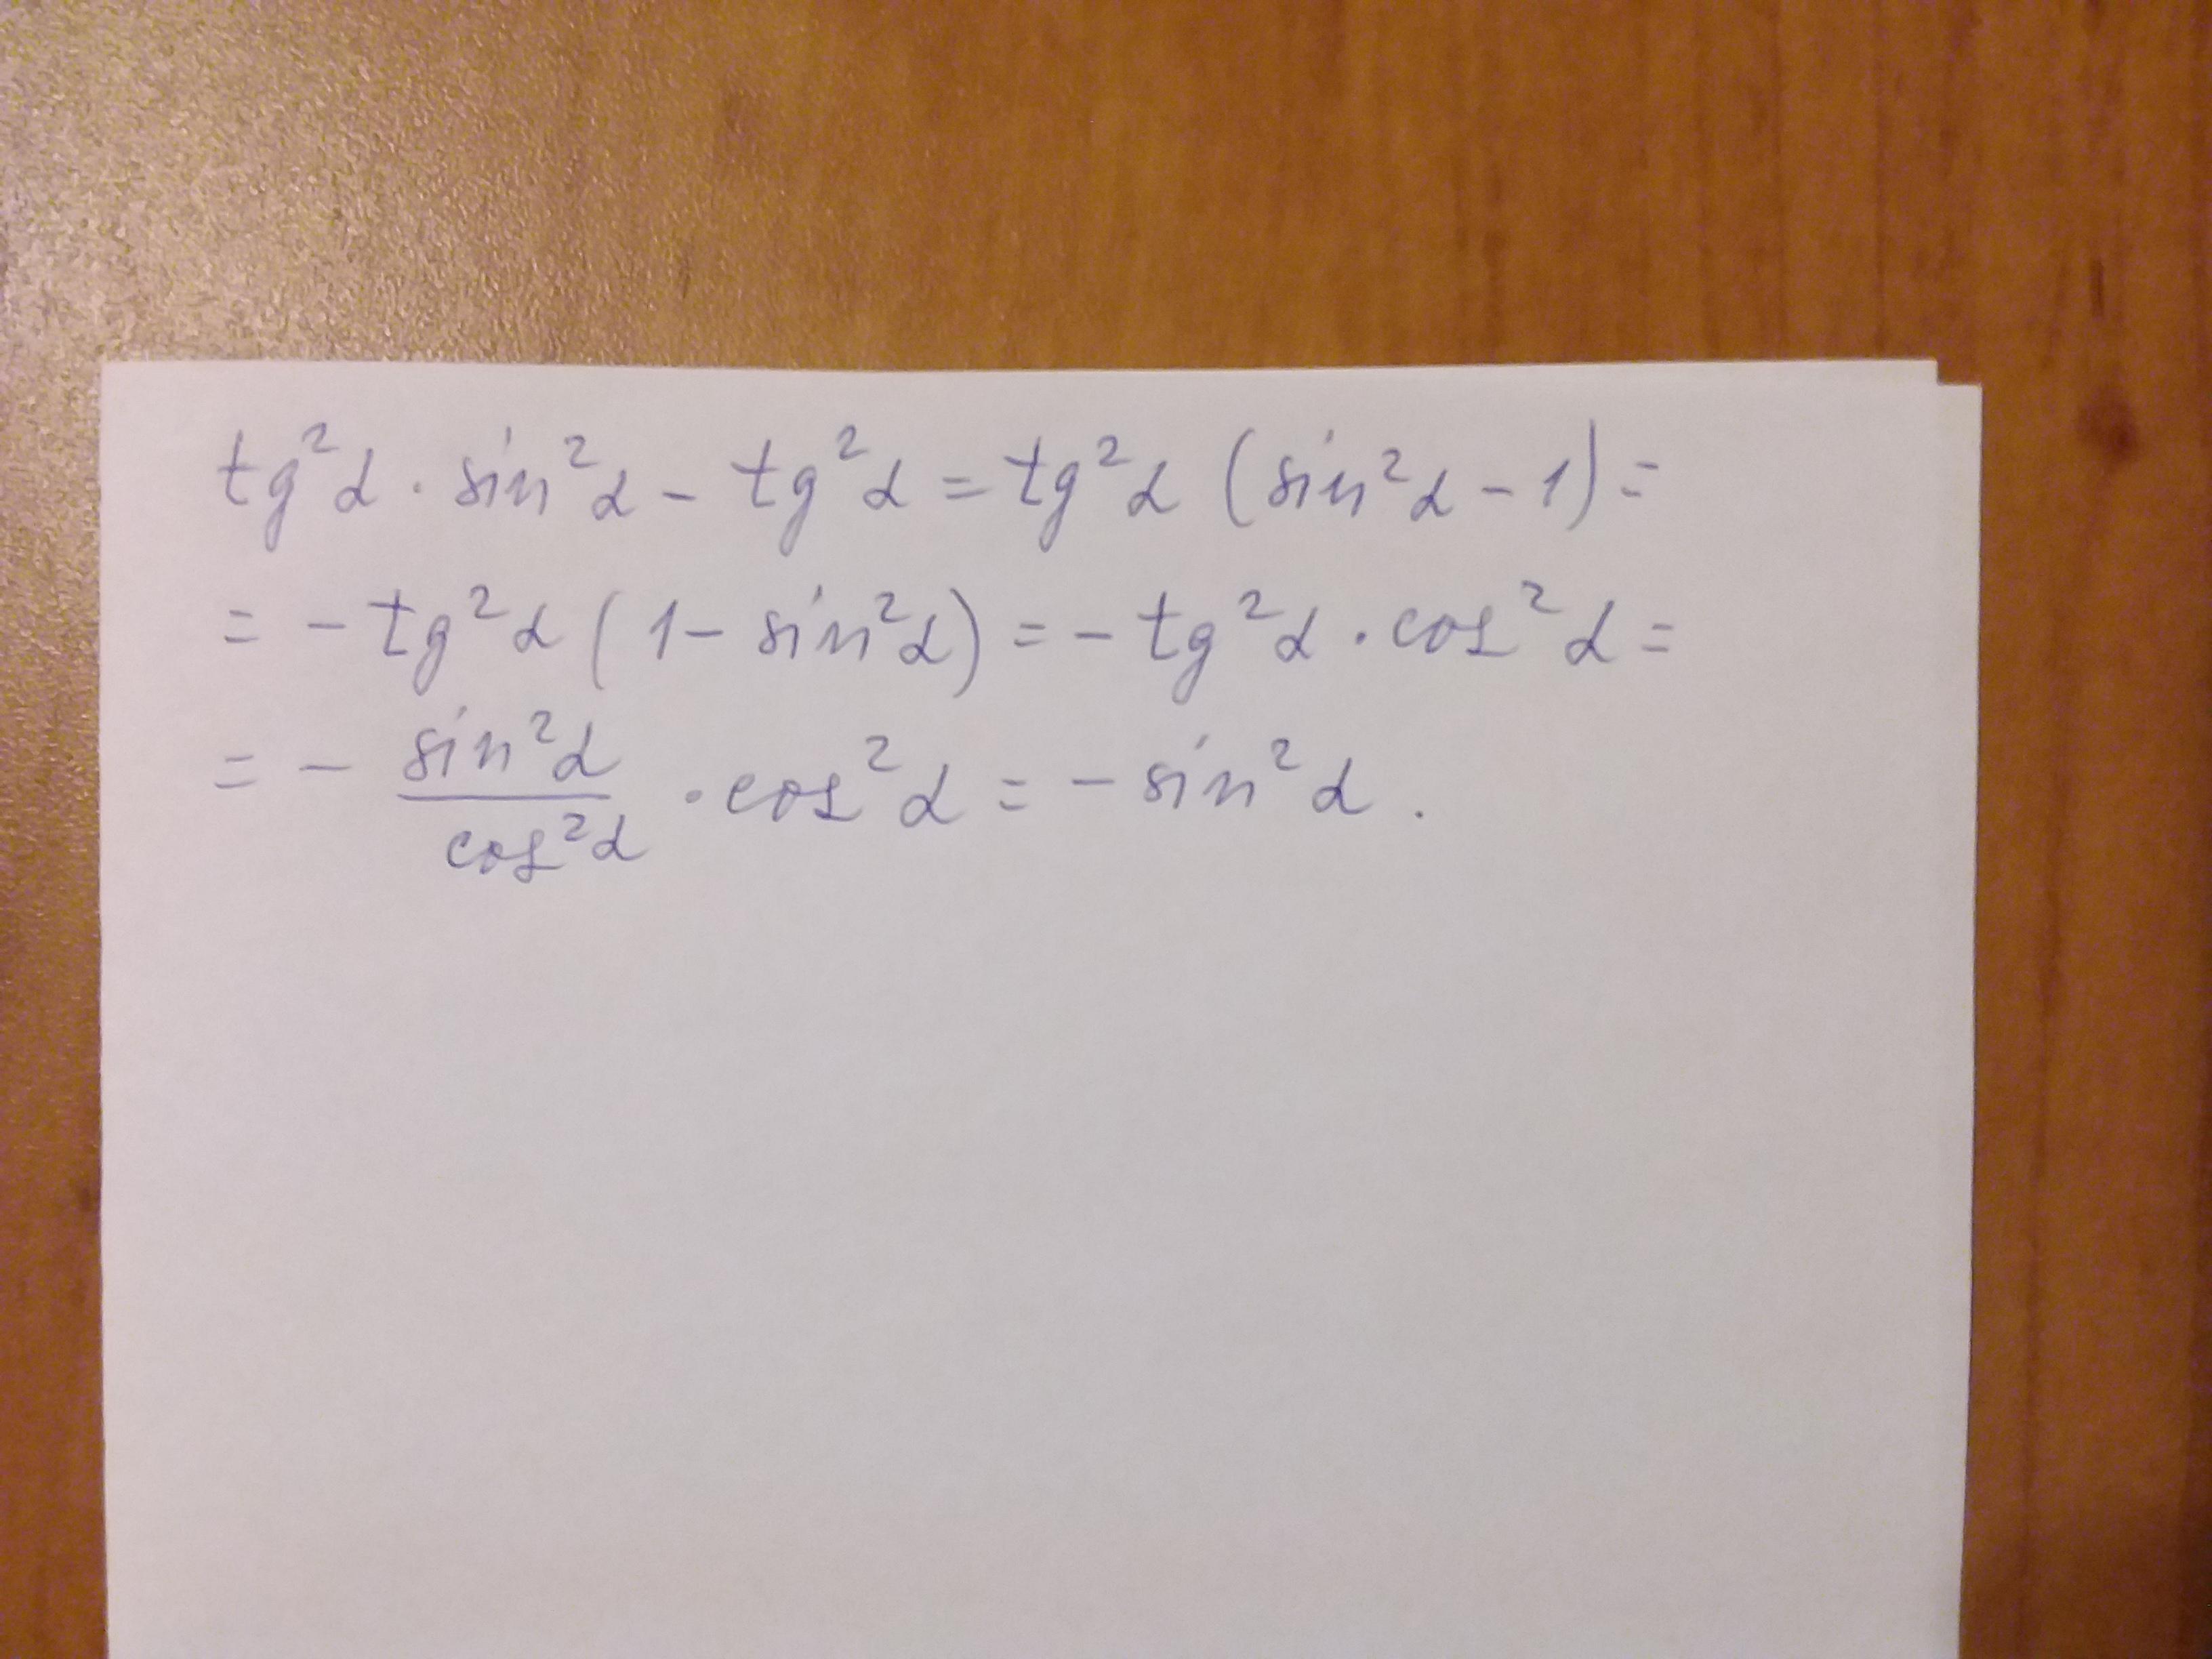 tg²α · sin²α - tg²α = tg²α (sin²α - 1) =
= - tg²α (1 - sin²α) = - tg²α · cos²α =
= - sin²α/cos²α · cos²α = - sin²α .